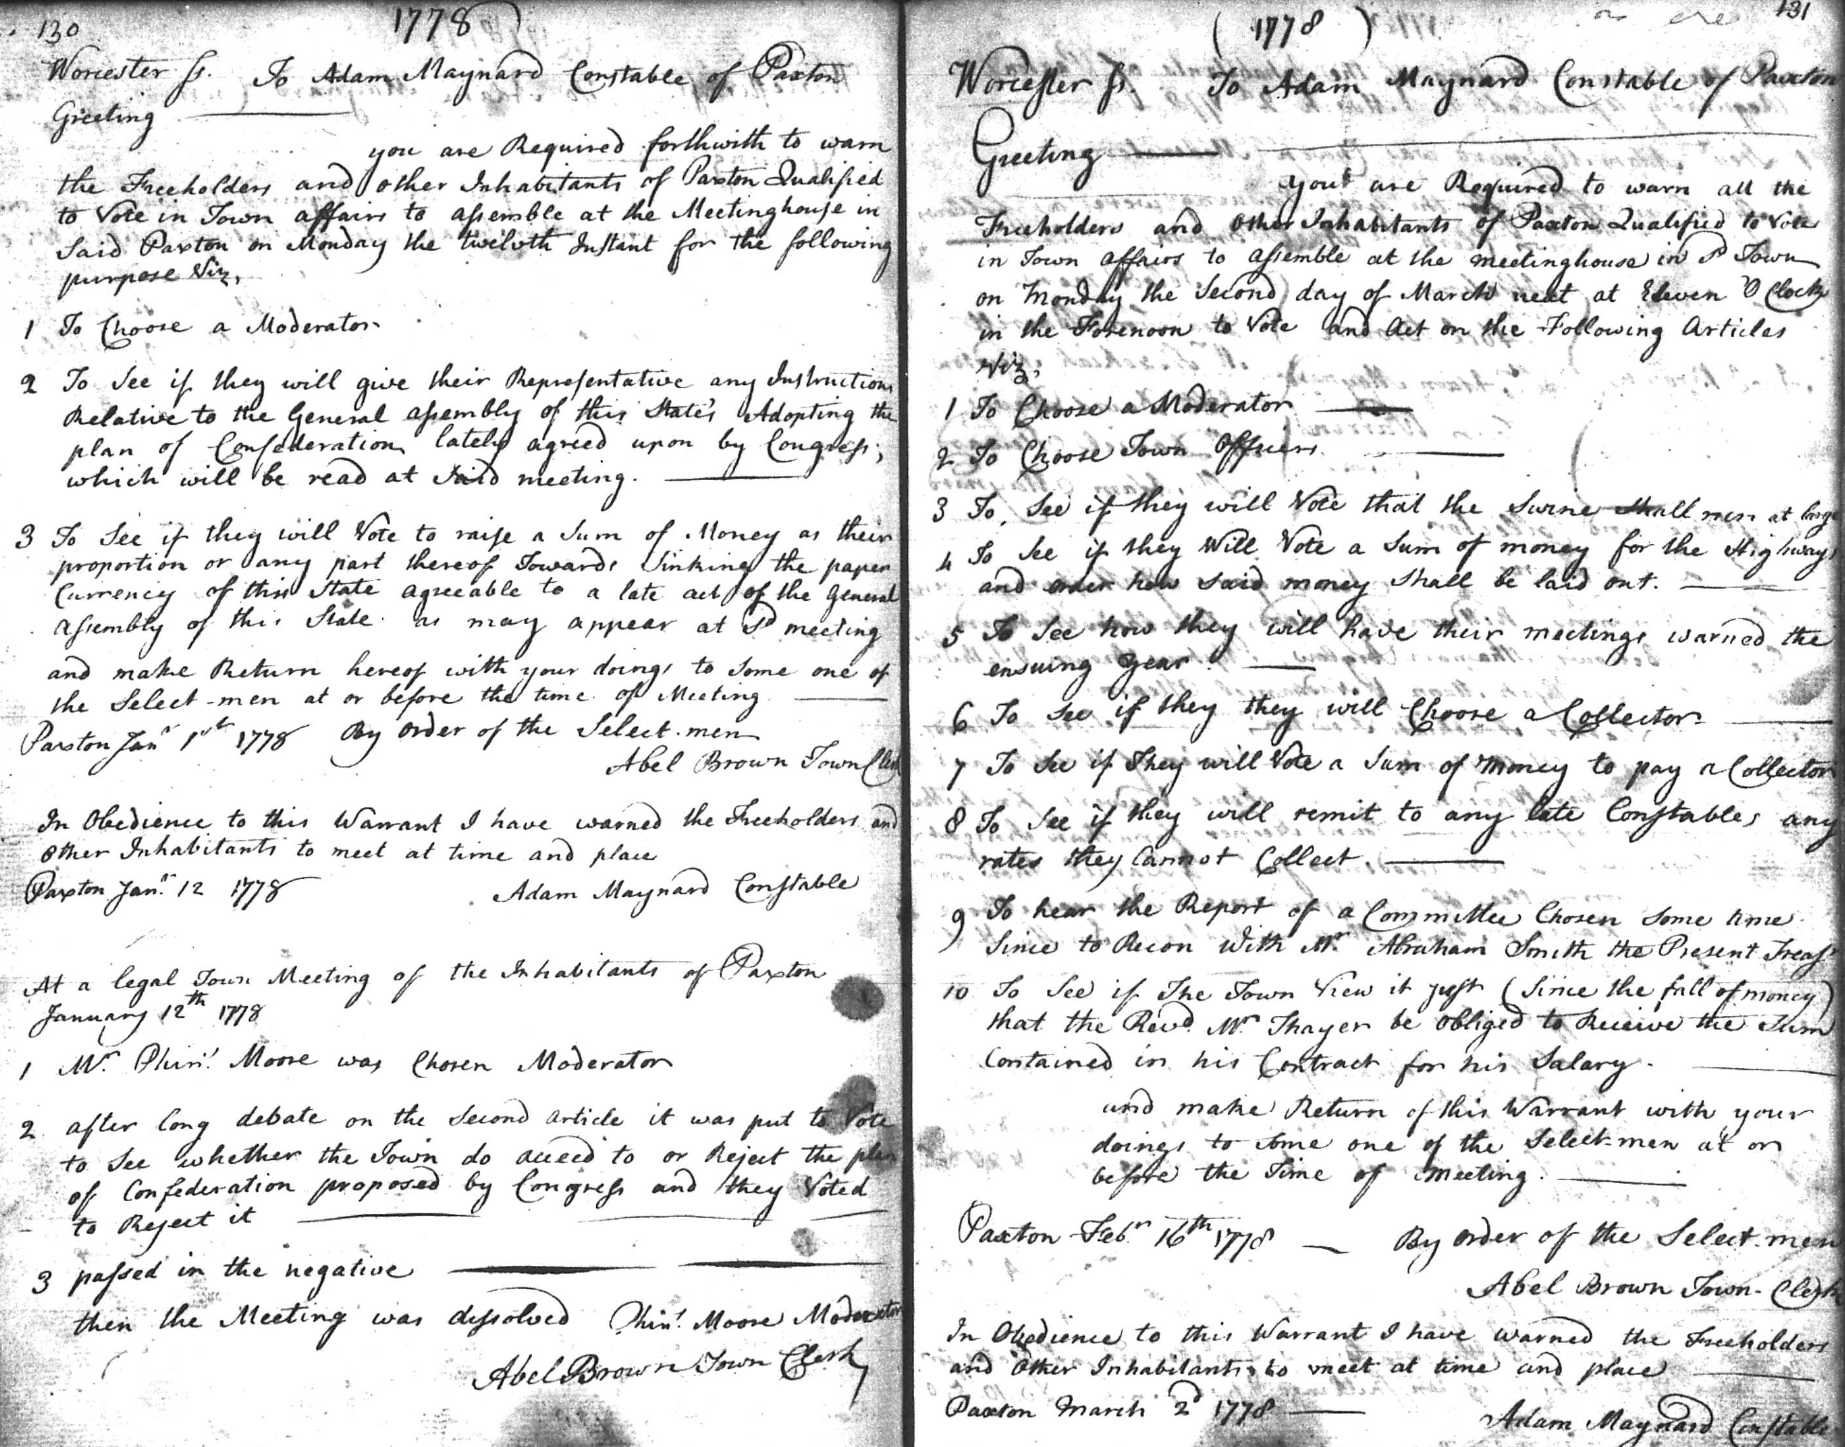 130
1778
Worcester ss. To Adam Maynard Constable of Paxton
Greeting
you are Required forthwith to warn
the Freeholders and other Inhabitants of Paxton Qualified
to Vote in Town affairs to assemble at the Meetinghouse in
Said Paxton on Monday the twelvth Instant for the following
purpose Viz,
1 To Choose a Moderator
2 To See if they will give their Representative any Instructions
Relative to the General assembly of this State's Adopting the
plan of Confederation lately agreed upon by Congress;
which will be read at Said meeting.
3 To See if they will Vote to raise a Sum of Money as their
proportion or any part thereof Towards Sinking the paper
Currency of this State agreeable to a late act of the General
assembly of this State as may appear at Sd meeting
and make Return hereof with your doings to Some one of
the Select-men at or before the time of Meeting
Paxton Jany 1st 1778 By order of the Select-men
Abel Brown Town Clerk
In Obedience to this Warrant I have warned the Freeholders and
other Inhabitants to meet at time and place
Paxton Jany 12 1778 Adam Maynard Constable
At a legal Town Meeting of the Inhabitants of Paxton
January 12th 1778
1 Mr. Phins. Moore was Chosen Moderator
2 after long debate on the Second article it was put to Vote
to See whether the Town do acceed to or Reject the plan
of Confederation proposed by Congress and they Voted
to Reject it
3 passed in the negative
then the Meeting was dissolved Phins. Moore Moderator
Abel Brown Town Clerk
(1778)
131
Worcester ss. To Adam Maynard Constable of Paxton
Greeting
you are Required to warn all the
Freeholders and Other Inhabitants of Paxton Qualified to Vote
in Town affairs to assemble at the meetinghouse in sd Town
on Monday the Second day of March next at Eleven O Clock
in the Forenoon to Vote and Act on the Following Articles
Viz,
1 To Choose a Moderator
2 To Choose Town Officers
3 To See if they will Vote that the Swine Shall run at large
4 To See if they Will Vote a Sum of money for the Highways
and order how Said money Shall be laid out.
5 To See how they will have their meetings warned the
ensuing year
6 To See if they they will Choose a Collector
7 To See if They will Vote a Sum of Money to pay a Collector
8 To See if they will remit to any late Constables any
rates they Cannot Collect.
9 To hear the Report of a Committee Chosen Some time
Since to Recon With Mr. Abraham Smith the Present Treasr
10 To See if The Town View it just (Since the fall of money)
that the Revd. Mr. Thayer be obliged to Receive the Sum
Contained in his Contract for his Salary.
and make Return of this Warrant with your
doings to Some one of the Select-men at or
before the Time of Meeting.
Paxton Febr 16th 1778 By order of the Select-men
Abel Brown Town-Clerk
In Obedience to this Warrant I have warned the Freeholders
and Other Inhabitants to meet at time and place
Paxton March 2d 1778
Adam Maynard Constable